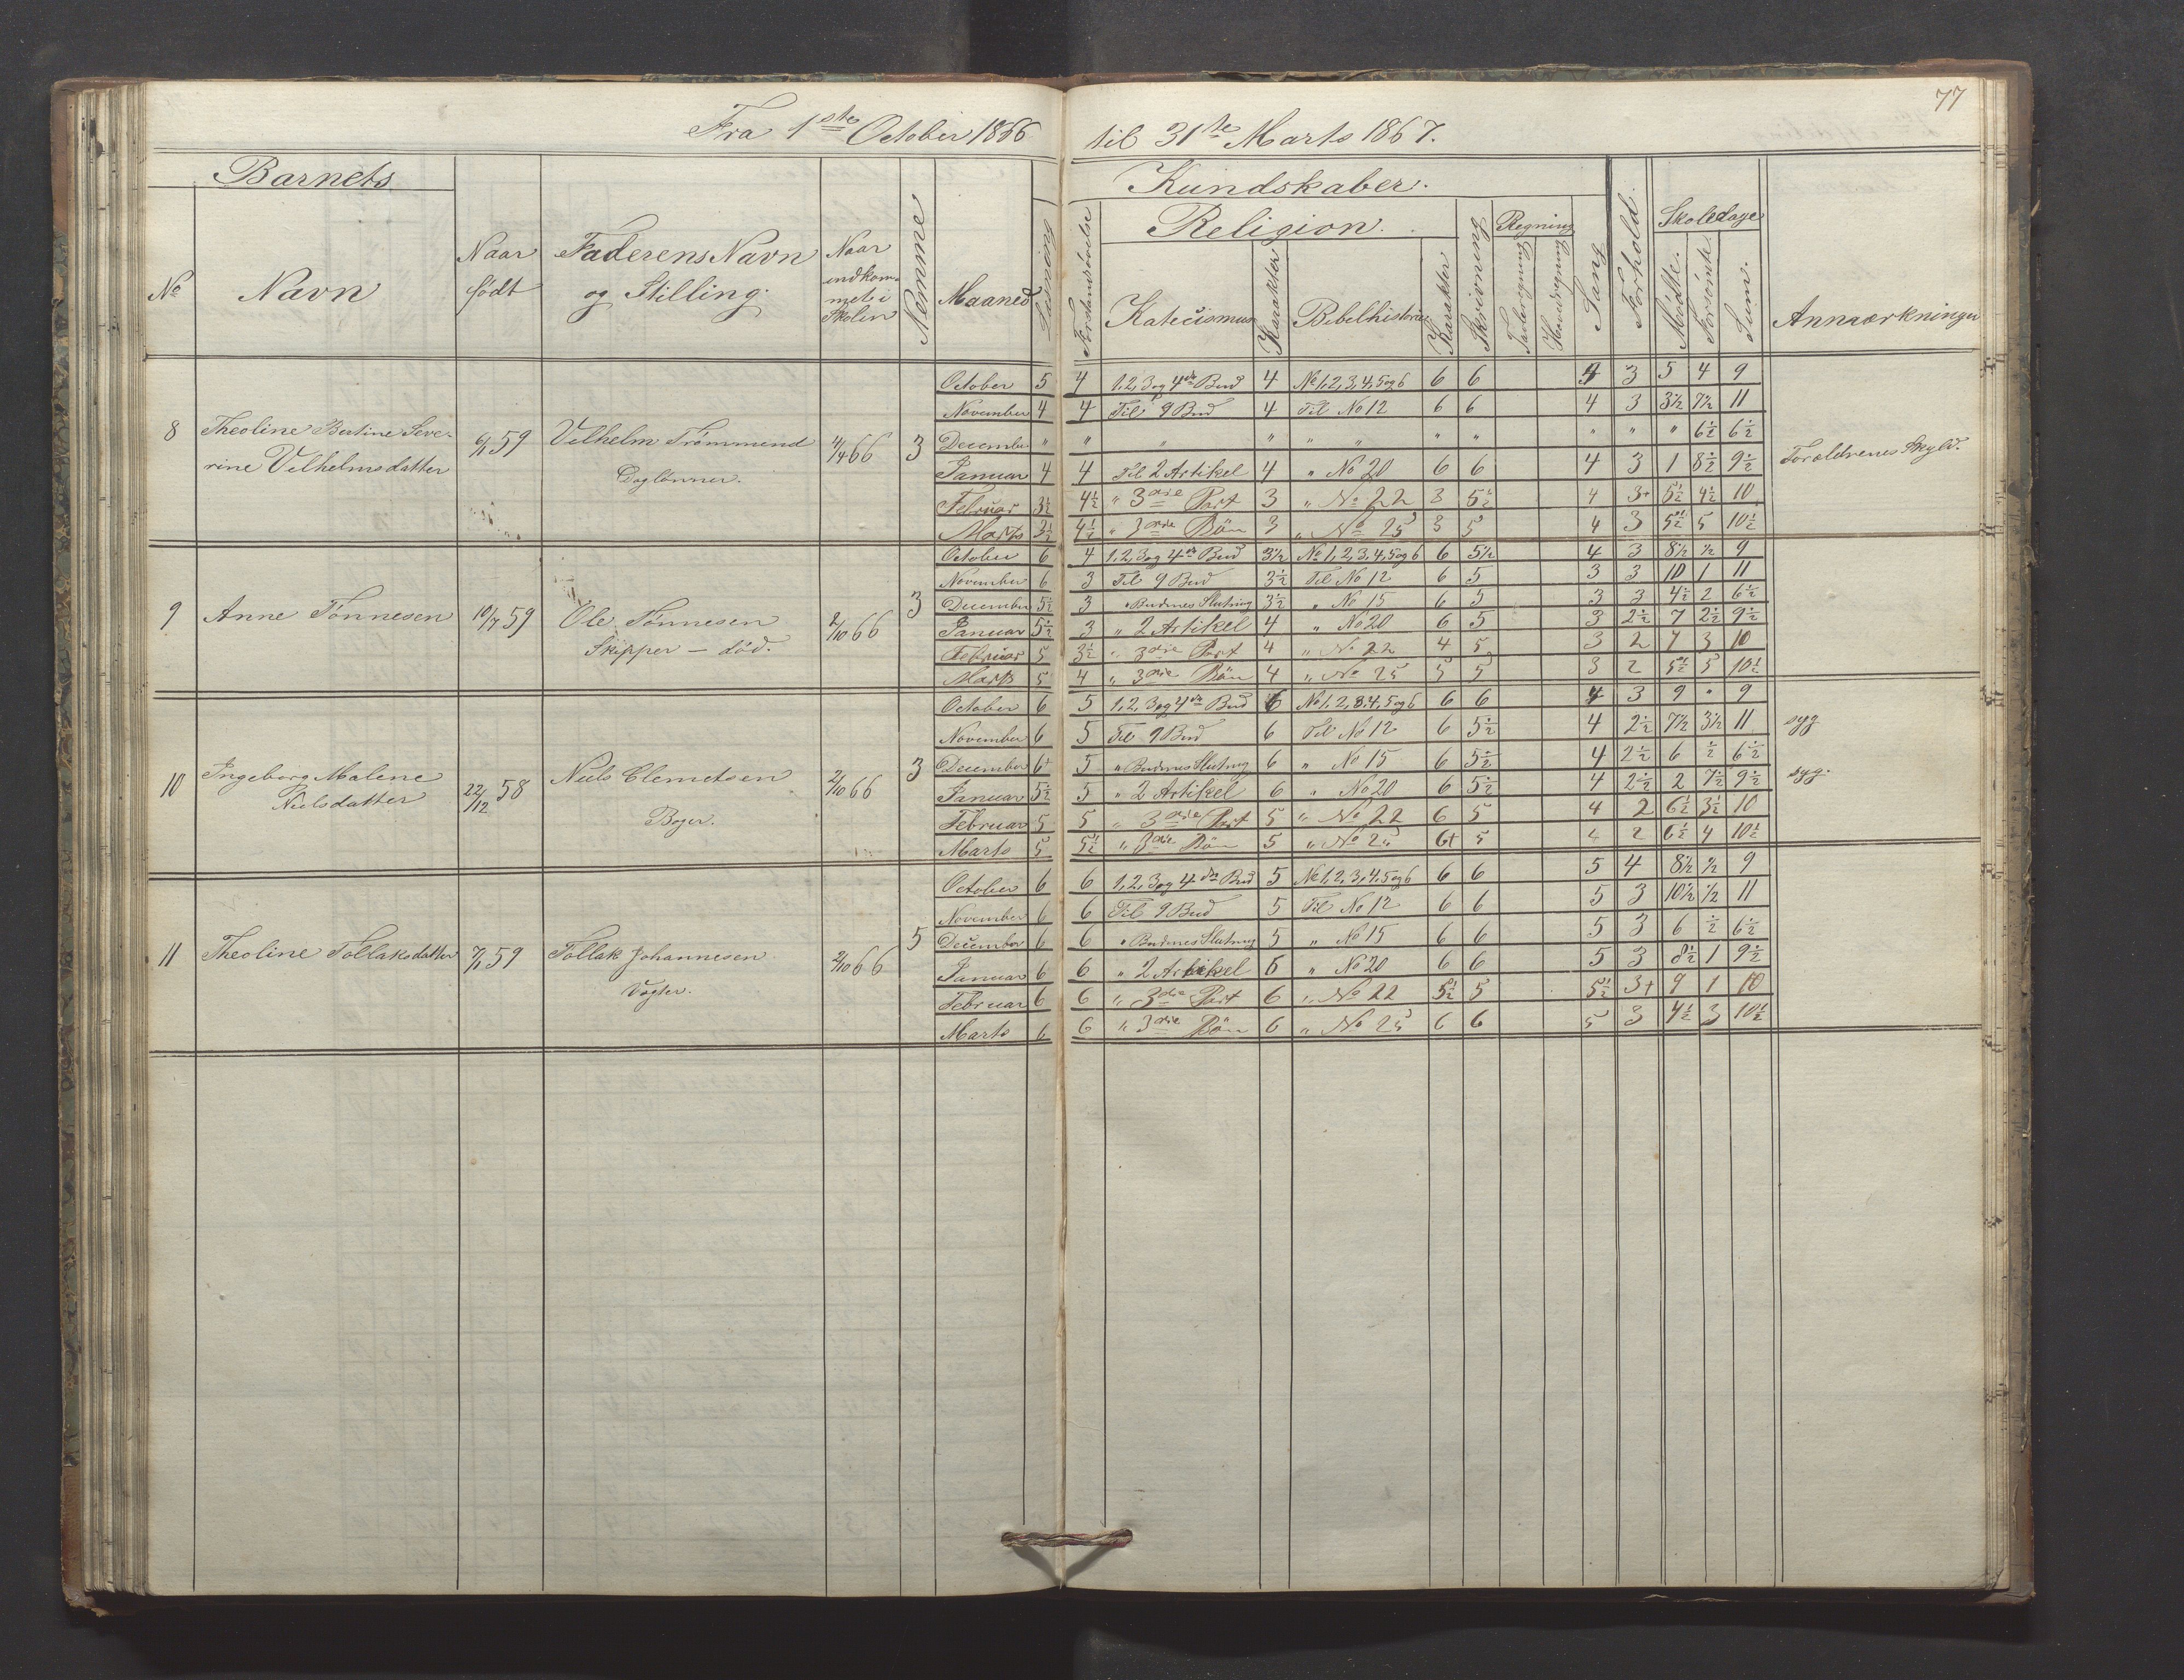 77
Fra 1ste October 1866 til 31te Marts 1867.
Barnets
Kundskaber.
No Navn
Naar født
Faderens Navn og Stilling.
Naar indkommet i Skolen
Nemme
Maaned
Læsning
Forstandsøvelse
Religion.
Katecismus
Karakter
Bibelhistorie
Karakter
Skrivning
Regning
Tavleregning
Hovedregning
Sang
Forhold.
Skoledage
Mødte.
Forsømte.
Sum.
Anmærkninger
8 Theoline Bertine Seve-
rine Vilhelmsdatter
59
Vilhelm Trommend
Daglønner.
4/4 66
3
October 5 4 1, 2, 3 og 4de Bud 4 No 1, 2, 3, 4, 5 og 6 6 6 4 3 5 4 9
November 4 4 Til 9 Bud 4 Til No 12 6 6 4 3 3½ 7½ 11
December " " " " " " " " " " " 6½ 6½
Januar 4 4 Til 2 Artikel 4 " No 20 6 6 4 3 1 8½ 9½ Forældrenes Skyld.
Februar 3½ 4½ " 3die Part 3 " No 22 3 5½ 4 3+ 5½ 4½ 10
Marts 3½ 4½ " 3die Bön 3 " No 25 3 5 4 3 5½ 5 10½
9 Anne Tønnesen
10/7 59
Ole Tønnesen
Skipper — död.
2/10 66
3
October 6 4 1, 2, 3 og 4de Bud 3½ No 1, 2, 3, 4, 5 og 6 6 5½ 4 3 8½ ½ 9
November 6 3 Til 9 Bud 3½ Til No 12 6 5 3 3 10 1 11
December 5½ 3 " Budenes Slutning 3½ " No 15 6 5 3 3 4½ 2 6½
Januar 5½ 3 " 2 Artikel 4 " No 20 6 5 3 2½ 7 2½ 9½
Februar 5 3½ " 3die Part 4 " No 22 4 5 3 2 7 3 10
Marts 5 4 " 3die Bön 4 " No 25 5 5 3 2 5½ 5 10½
10 Ingeborg Malene
Nielsdatter
22/12 58
Niels Clemetsen
Boger.
2/10 66
3
October 6 5 1, 2, 3 og 4de Bud 6 No 1, 2, 3, 4, 5 og 6 6 6 4 3 9 " 9
November 6 5 Til 9 Bud 6 Til No 12 6 5½ 4 2½ 7½ 3½ 11 syg
December 6+ 5 " Budenes Slutning 6 " No 15 6 5½ 4 2½ 6 ½ 6½
Januar 5½ 5 " 2 Artikel 6 " No 20 6 5½ 4 2½ 2 7½ 9½ syg.
Februar 5 5 " 3die Part 5 " No 22 6 5 4 2 6½ 3½ 10
Marts 5 5½ " 3die Bön 5 " No 25 6+ 5 4 2 6½ 4 10½
11 Theoline Tollaksdatter
59
Tollak Johannesen
Vogter.
2/10 66
5
October 6 6 1, 2, 3 og 4de Bud 5 No 1, 2, 3, 4, 5 og 6 6 6 5 4 8½ ½ 9
November 6 6 Til 9 Bud 5 Til No 12 6 6 5 3 10½ ½ 11
December 6 6 " Budenes Slutning 5 " No 15 6 6 5 3 6 ½ 6½
Januar 6 6 " 2 Artikel 6 " No 20 6 6 5 3 8½ 1 9½
Februar 6 6 " 3die Part 6 " No 22 5½ 5 5½ 3+ 9 1 10
Marts 6 6 " 3die Bön 6 " No 25 6 6 5 3 7½ 3 10½